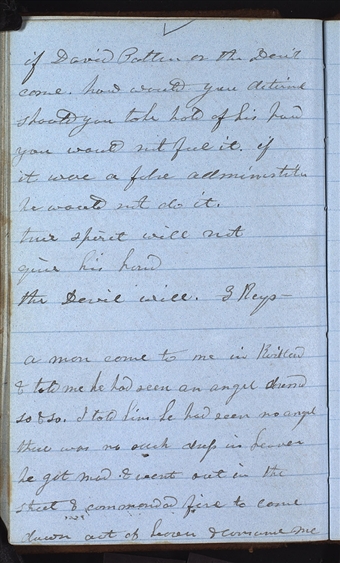 if David Patten or the Devil
come. how would you determine
should you take hold of his hand
you would not feel it. if
it were a false administrator
he would not do it.
true spirit will not
give his hand
the Devil will. 3 Keys—
a man come to me in Kirtland
& told me he had seen an angel dressed
so & so. I told him he had seen no angel
there was no such dress in heaven
he got mad & went out in the
street & commanded fire to come
down out of heaven & consume me